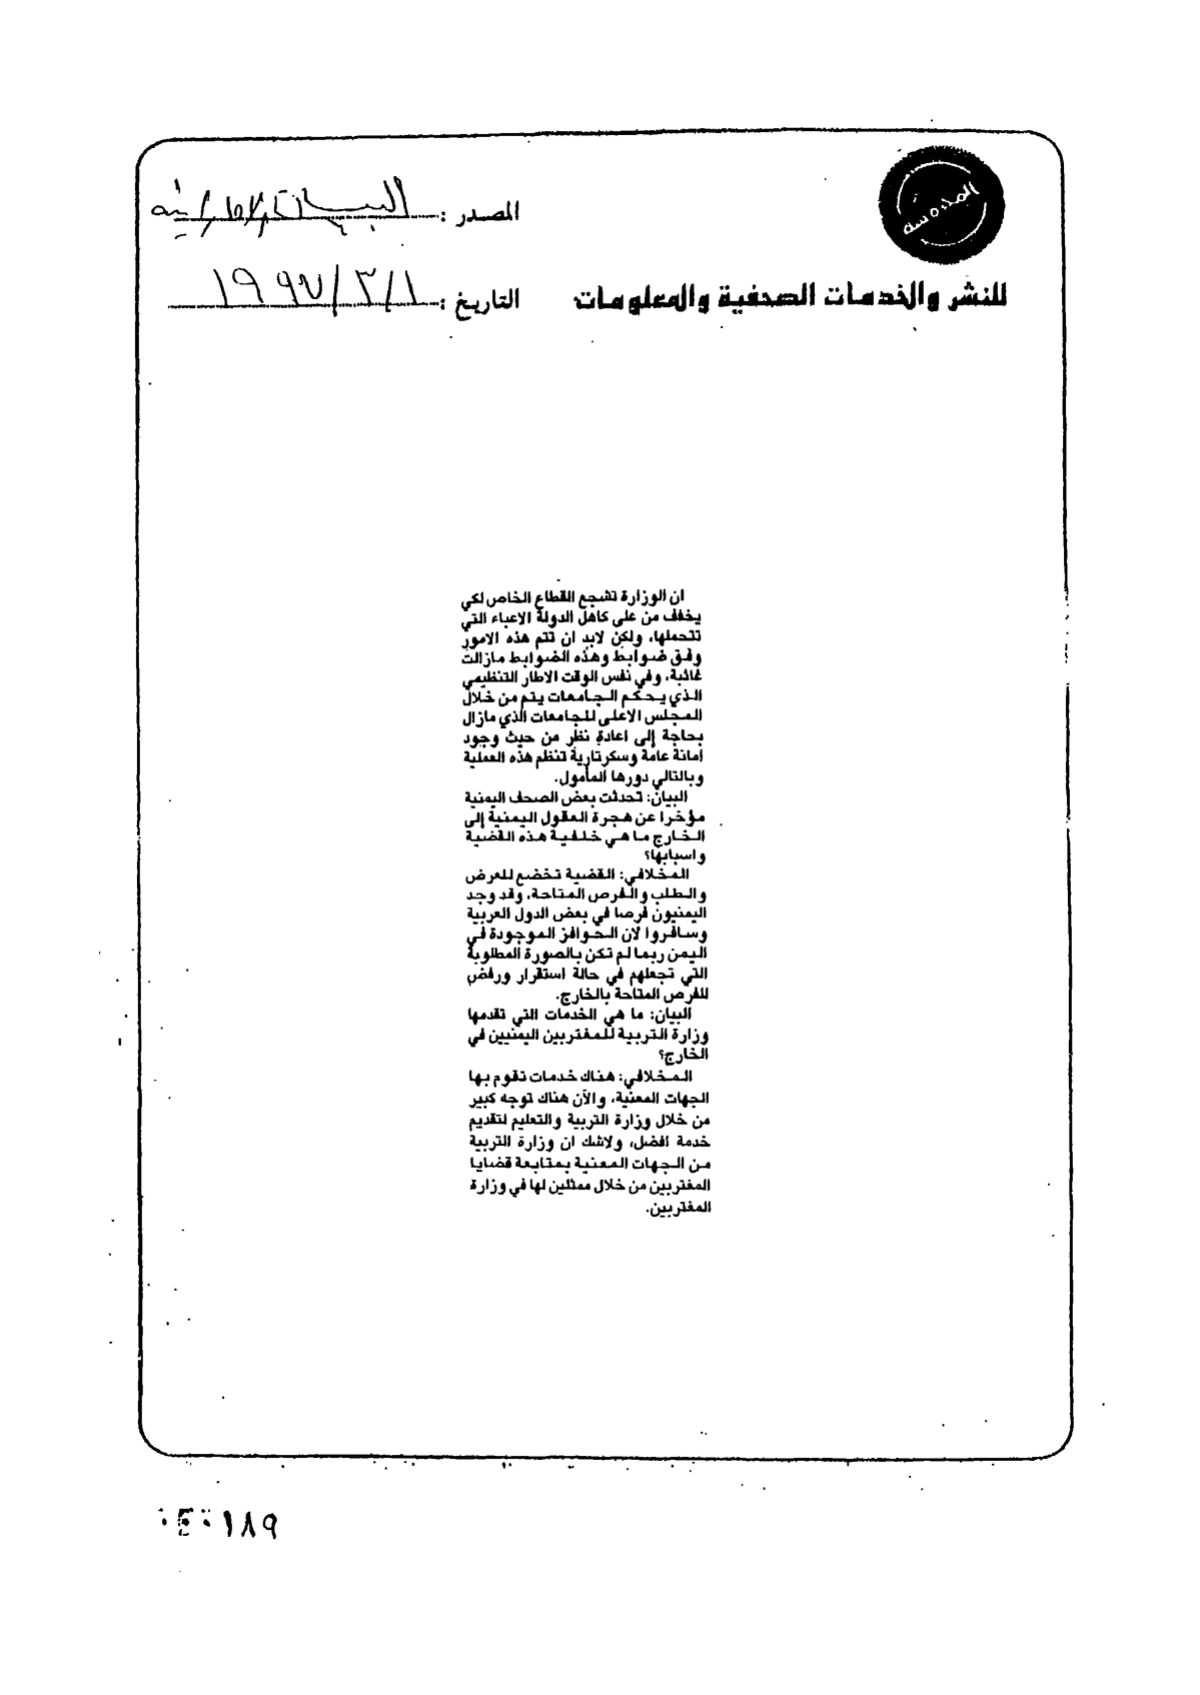 المصدر : البيان الإماراتية
للنشر والخدمات الصحفية والمعلومات
التاريخ : ١٩٩٧/٣/١
ان الوزارة تشجع القطاع الخاص لكي
يخفف من على كاهل الدولة الاعباء التي
تتحملها، ولكن لابد ان تتم هذه الامور
وفق ضوابط وهذه الضوابط مازالت
غائبة، وفي نفس الوقت الاطار التنظيمي
الذي يحكم الجامعات يتم من خلال
المجلس الاعلى للجامعات الذي مازال
بحاجة إلى اعادة نظر من حيث وجود
امانة عامة وسكرتارية تنظم هذه العملية
وبالتالي دورها المأمول.
البيان: تحدثت بعض الصحف اليمنية
مؤخرا عن هجرة العقول اليمنية إلى
الخارج ما هي خلفية هذه القضية
واسبابها؟
المخلافي: القضية تخضع للعرض
والطلب والفرص المتاحة، وقد وجد
اليمنيون فرصا في بعض الدول العربية
وسافروا لان الحوافز الموجودة في
اليمن ربما لم تكن بالصورة المطلوبة
التي تجعلهم في حالة استقرار ورفض
للفرص المتاحة بالخارج.
البيان: ما هي الخدمات التي تقدمها
وزارة التربية للمغتربين اليمنيين في
الخارج؟
المخلافي: هناك خدمات تقوم بها
الجهات المعنية، والآن هناك توجه كبير
من خلال وزارة التربية والتعليم لتقديم
خدمة افضل، ولاشك ان وزارة التربية
من الجهات المعنية بمتابعة قضايا
المغتربين من خلال ممثلين لها في وزارة
المغتربين.
١٨٩